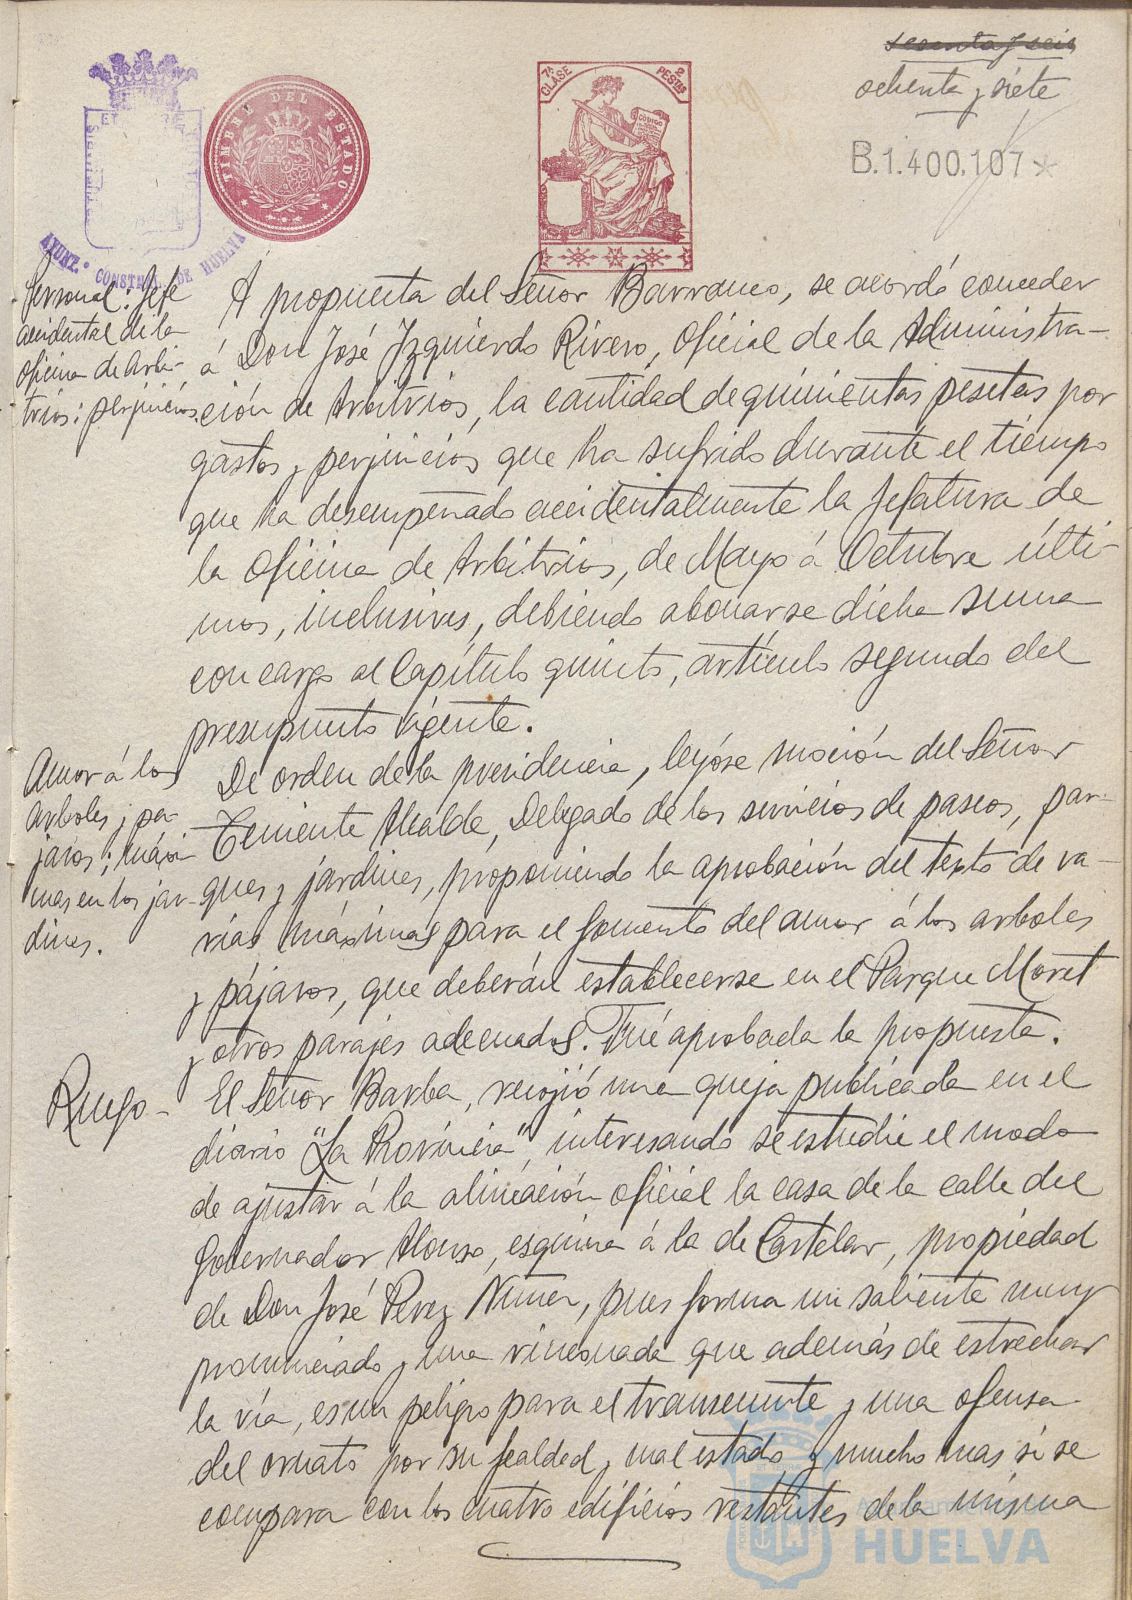 sesenta y seis
ochenta y siete
B.1.400.107*
7ª CLASE
2 PESTAS
CODIGO
TIMBRE DEL ESTADO
AYUNT.º CONSTNAL DE HUELVA
Personal: Jefe
accidental de la
oficina de Arbi-
trios: perjuicios.
Á propuesta del Señor Barranco, se acordó conceder
á Don José Izquierdo Rivero, Oficial de la Administra-
ción de Arbitrios, la cantidad de quinientas pesetas por
gastos y perjuicios que ha sufrido durante el tiempo
que ha desempeñado accidentalmente la Jefatura de
la Oficina de Arbitrios, de Mayo á Octubre últi-
mos, inclusives, debiendo abonarse dicha suma
con cargo al Capítulo quinto, artículo segundo del
presupuesto vigente.
Amor á los
arboles y pá-
jaros; máxi-
mas en los jar-
dines.
De orden de la presidencia, leyóse moción del Señor
Teniente Alcalde, Delegado de los servicios de paseos, par-
ques y jardines, proponiendo la aprobación del texto de va-
rias máximas para el fomento del amor á los arboles
y pájaros, que deberán establecerse en el Parque Moret
y otros parajes adecuados. Fué aprobada la propuesta.
Ruego-
El Señor Barba, recojió una queja publicada en el
diario "La Provincia", interesando se estudie el modo
de ajustar á la alineación oficial la casa de la calle del
Gobernador Alonso, esquina á la de Castelar, propiedad
de Don José Perez Nuñez, pues forma un saliente muy
pronunciado y una rinconada que además de estrechar
la vía, es un peligro para el transeunte y una ofensa
del ornato por su fealdad y mal estado y mucho mas si se
compara con los cuatro edificios restantes de la misma
Ayuntamiento de
HUELVA